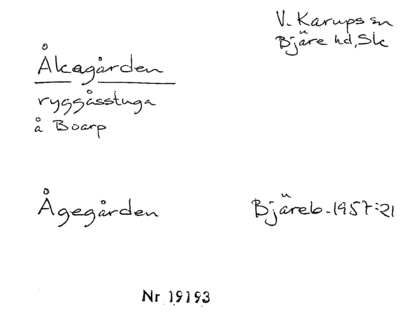 V. Karups sn
Bjäre hd, Sk
Åkagården
ryggåsstuga
å Boarp
Ågegården
Bjäreb. 1957:21
Nr 19193